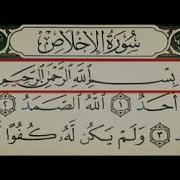 سُورَةُ الْإِخْلَاصِ
بِسْمِ اللَّهِ الرَّحْمَٰنِ الرَّحِيمِ
أَحَدٌ ١ اللَّهُ الصَّمَدُ ٢
٣ وَلَمْ يَكُن لَّهُ كُفُوًا